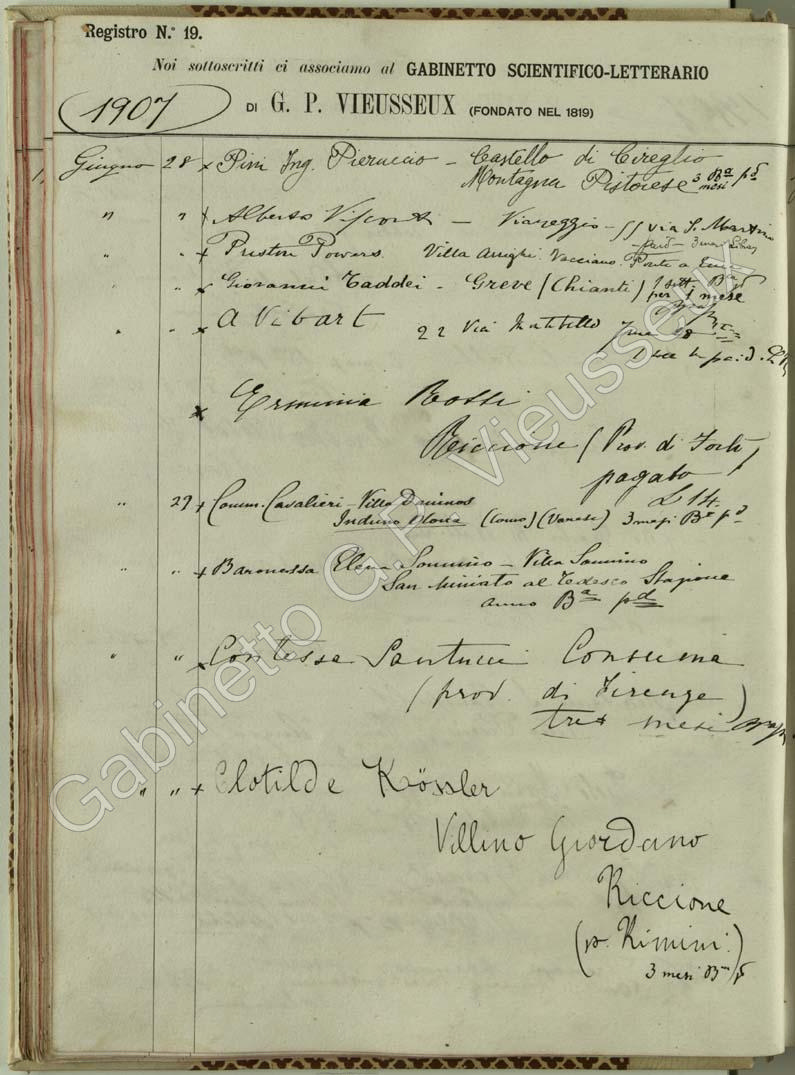 Registro N.° 19.
Noi sottoscritti ci associamo al GABINETTO SCIENTIFICO-LETTERARIO
1907
DI G. P. VIEUSSEUX (FONDATO NEL 1819)
Giugno 28 x Pini Ing. Pieruccio - Castello di Cireglio
Montagna Pistoiese 3 mesi Ba pd
" " x Alberto Visconti - Viareggio - via S. Martino
" " x Preston Powers. Villa Arrighi. Vacciano. Ponte a Ema
" " x Giovanni Taddei - Greve (Chianti)
per 1 mese
" " x A Vibart 22 Via
x Erminia Rossi
Riccione (Prov. di Forlì)
pagato
L 14.
" 29 x Comm. Cavalieri - Villa
Induno Olona (Como) (Varese) 3 mesi Ba pd
" " x Baronessa Elena Sonnino - Villa Sonnino
San Miniato al Tedesco Stazione
anno Ba pd
" " x Contessa Santucci Consuma
(prov. di Firenze)
tre mesi
" " x Clotilde Kössler
Villino Giordano
Riccione
(p. Rimini.)
3 mesi
Gabinetto G.P. Vieusseux